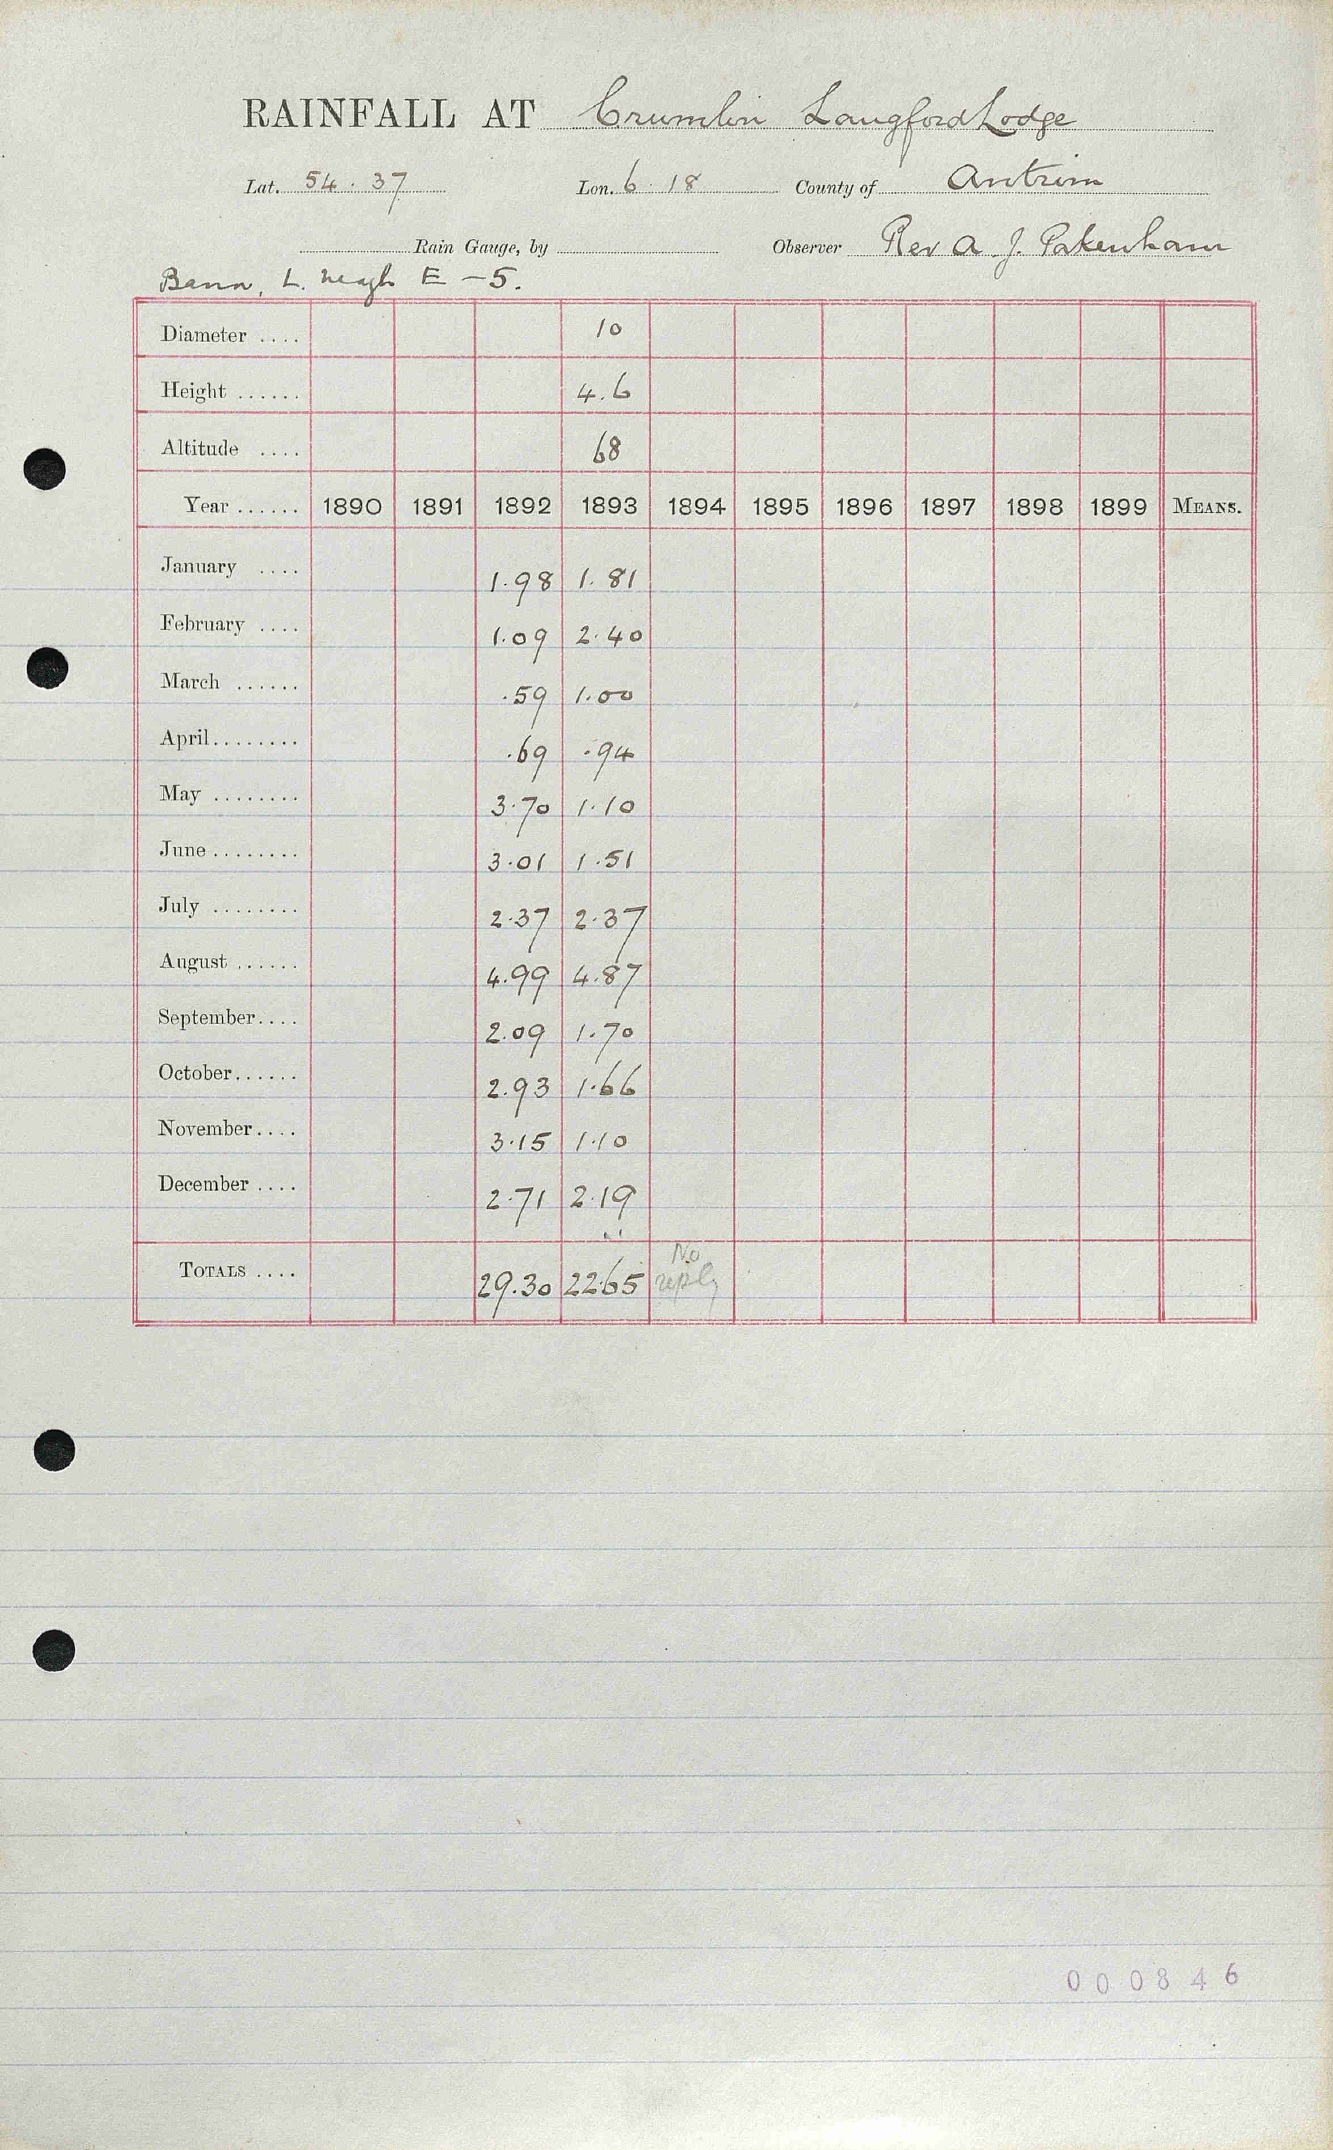 RAINFALL AT Crumlin Langford Lodge
Lat. 54.37 Lon. 6.18 County of Antrim
Rain Gauge, by Observer Rev A. J. Pakenham
Bann, L. Neagh E -5.
Diameter .... 10
Height ...... 4.6
Altitude .... 68
Year ...... 1890 1891 1892 1893 1894 1895 1896 1897 1898 1899 MEANS.
January .... 1.98 1.81
February .... 1.09 2.40
March ...... .59 1.00
April........ .69 .94
May ........ 3.70 1.10
June ........ 3.01 1.51
July ........ 2.37 2.37
August ...... 4.99 4.87
September.... 2.09 1.70
October...... 2.93 1.66
November.... 3.15 1.10
December .... 2.71 2.19
TOTALS .... 29.30 22.65 No reply
000846